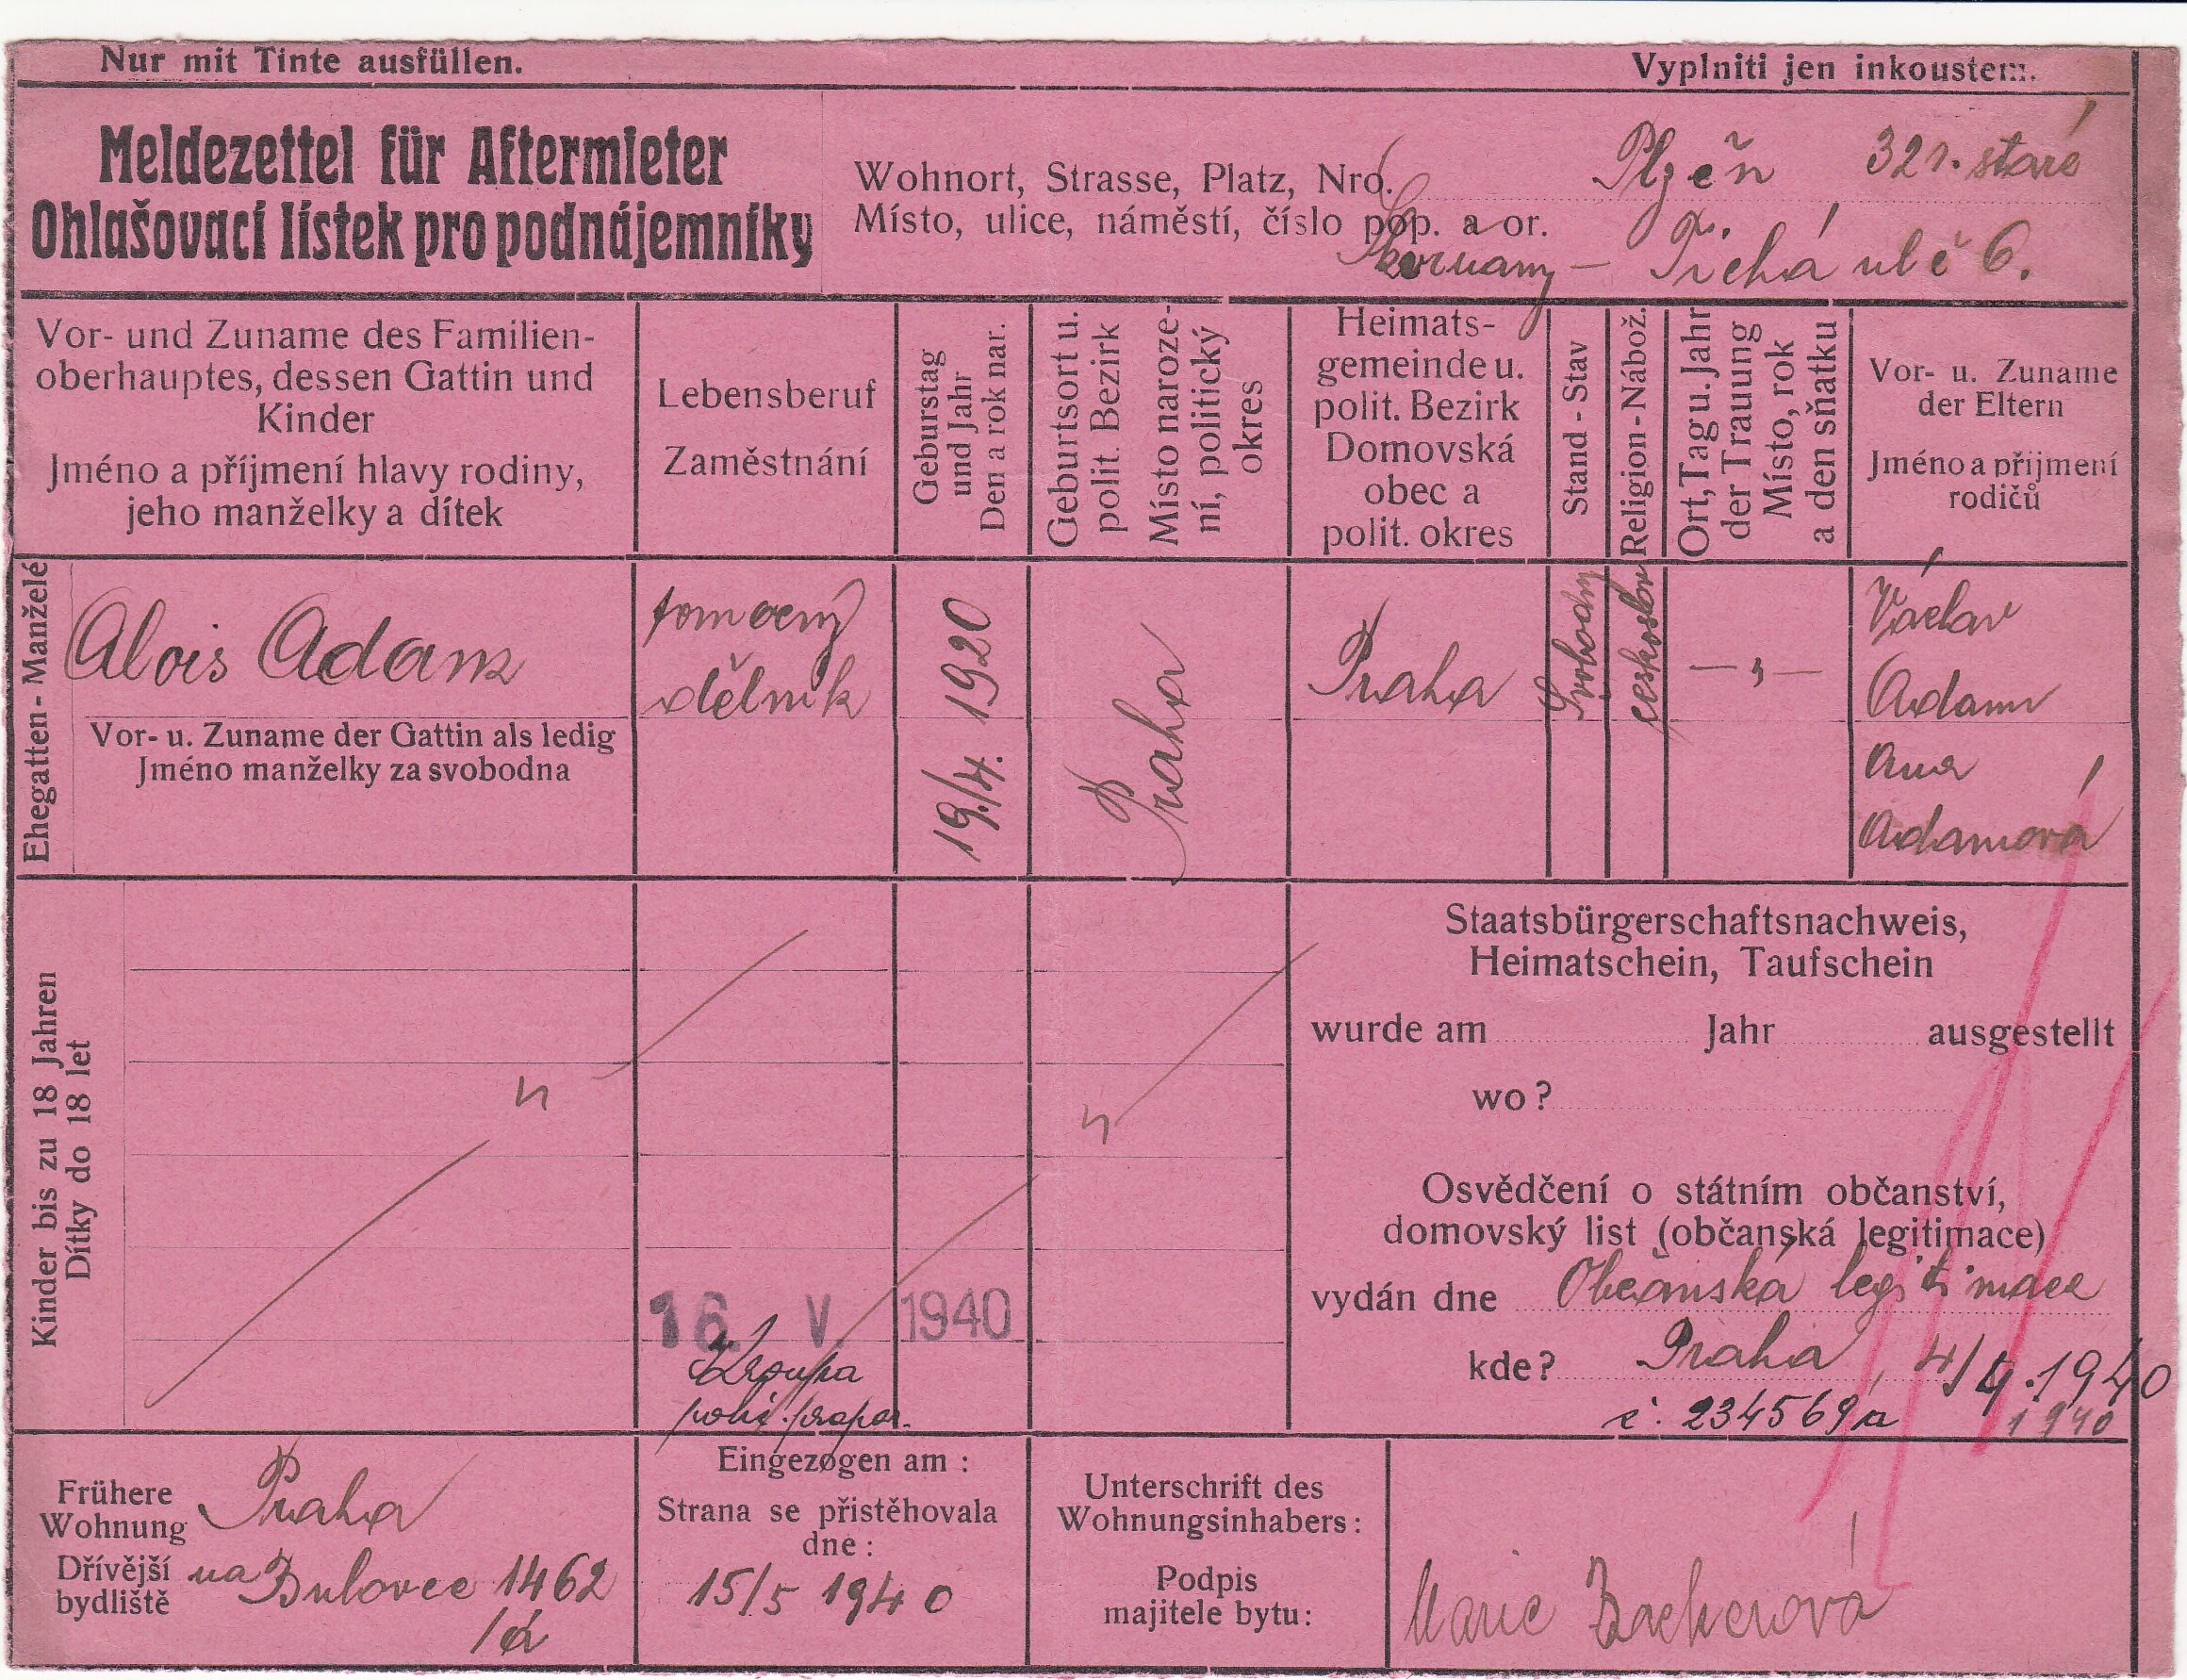 Nur mit Tinte ausfüllen.
Vyplniti jen inkoustem.
Meldezettel für Aftermieter
Ohlašovací lístek pro podnájemníky
Wohnort, Strasse, Platz, Nro.
Místo, ulice, náměstí, číslo pop. a or.
Plzeň 321. staré
Skvrňany – Tichá ul č 6.
Vor- und Zuname des Familien-
oberhauptes, dessen Gattin und
Kinder
Jméno a příjmení hlavy rodiny,
jeho manželky a dítek
Lebensberuf
Zaměstnání
Geburstag
und Jahr
Den a rok nar.
Geburtsort u.
polit. Bezirk
Místo naroze-
ní, politický
okres
Heimats-
gemeinde u.
polit. Bezirk
Domovská
obec a
polit. okres
Stand - Stav
Religion - Nábož.
Ort, Tag u. Jahr
der Trauung
Místo, rok
a den sňatku
Vor- u. Zuname
der Eltern
Jméno a příjmení
rodičů
Ehegatten - Manželé
Alois Adam
pomocný
dělník
19./4. 1920
Praha
Praha
Svobodný
českoslov
— „ —
Václav
Adam
Ana
Adamová
Vor- u. Zuname der Gattin als ledig
Jméno manželky za svobodna
Kinder bis zu 18 Jahren
Dítky do 18 let
16. V. 1940
Kroupa
polic. prapor.
Staatsbürgerschaftsnachweis,
Heimatschein, Taufschein
wurde am Jahr ausgestellt
wo?
Osvědčení o státním občanství,
domovský list (občanská legitimace)
vydán dne Občanská legitimace
kde? Praha, 4/4.1940
č. 234569/a 1940
Frühere
Wohnung
Dřívější
bydliště
Praha
na Bulovce 1462
Eingezogen am:
Strana se přistěhovala
dne:
15/5 1940
Unterschrift des
Wohnungsinhabers:
Podpis
majitele bytu:
Marie